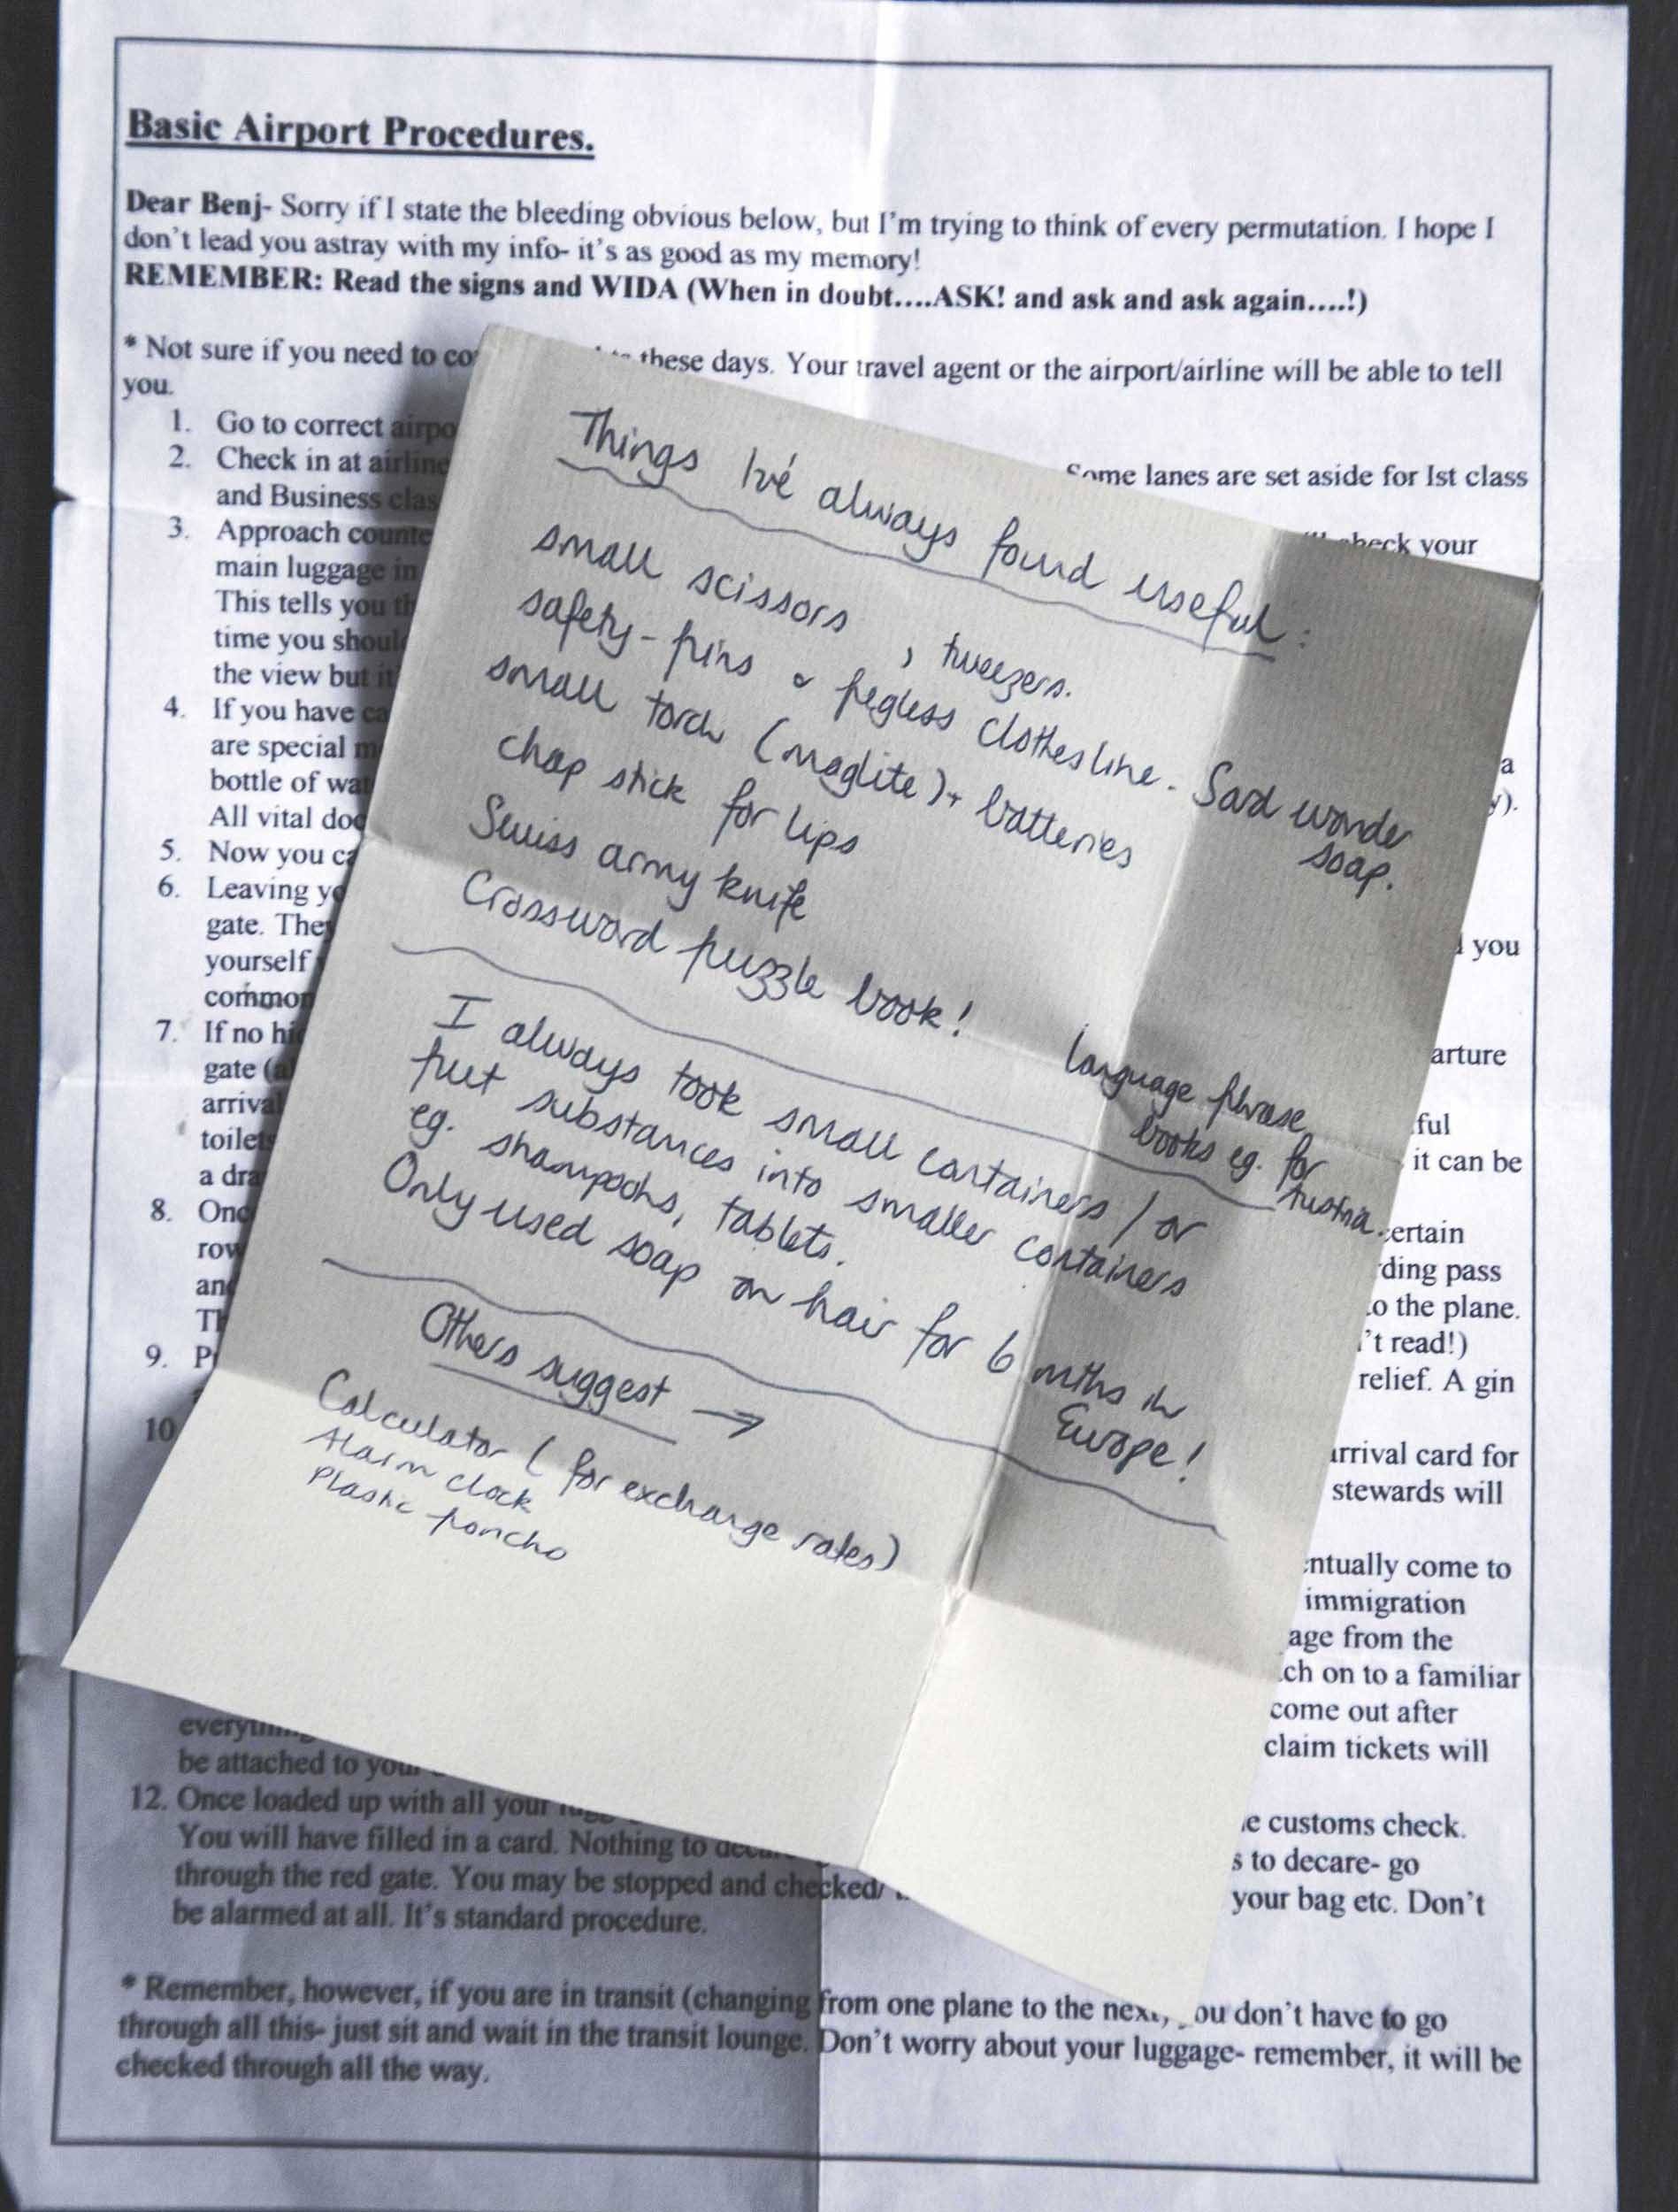 Basic Airport Procedures.
Dear Benj- Sorry if I state the bleeding obvious below, but I'm trying to think of every permutation. I hope I
don't lead you astray with my info- it's as good as my memory!
REMEMBER: Read the signs and WIDA (When in doubt....ASK! and ask and ask again....!)
* Not sure if you need to these days. Your travel agent or the airport/airline will be able to tell
you.
1. Go to correct
2. Check in at airline Some lanes are set aside for Ist class
and Business
3. Approach check your
main luggage in
This tells you
time you
the view but
4. If you have
are special a
bottle of
All vital
5. Now you
6. Leaving
gate. you
yourself
7. If no arture
gate
ful
it can be
a
8. ertain
ding pass
to the plane.
't read!)
9. relief. A gin
10 arrival card for
stewards will
entually come to
immigration
age from the
ch on to a familiar
come out after
be attached to claim tickets will
12. Once loaded up with all your customs check.
You will have filled in a card. Nothing to s to decare- go
through the red gate. You may be stopped and checked/ your bag etc. Don't
be alarmed at all. It's standard procedure.
* Remember, however, if you are in transit (changing from one plane to the next, you don't have to go
through all this- just sit and wait in the transit lounge. Don't worry about your luggage- remember, it will be
checked through all the way.
Things I've always found useful:
small scissors, tweezers.
safety-pins & pegless clothesline. Sard wonder
soap.
small torch (maglite) + batteries
chap stick for lips
Swiss army knife
Crossword puzzle book!
language phrase
books eg. for
Austria.
I always took small containers / or
put substances into smaller containers
eg. shampoohs, tablets.
Only used soap on hair for 6 mths in
Europe!
Others suggest →
Calculator (for exchange rates)
Alarm clock
Plastic poncho